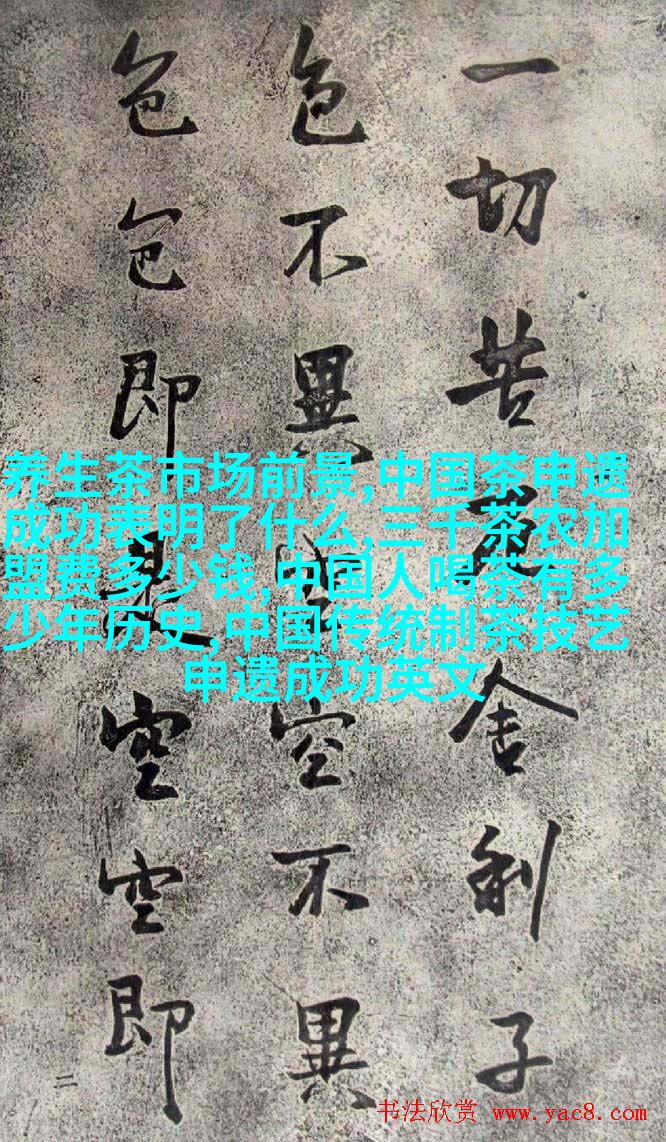 一切苦厄舍利子
色不異空空不異
色色即是空空即
二
养生茶市场前景,中国茶申遗
成功表明了什么,三千茶农加
盟费多少钱,中国人喝茶有多
少年历史,中国传统制茶技艺
申遗成功英文
书法欣赏 www.yac8.com